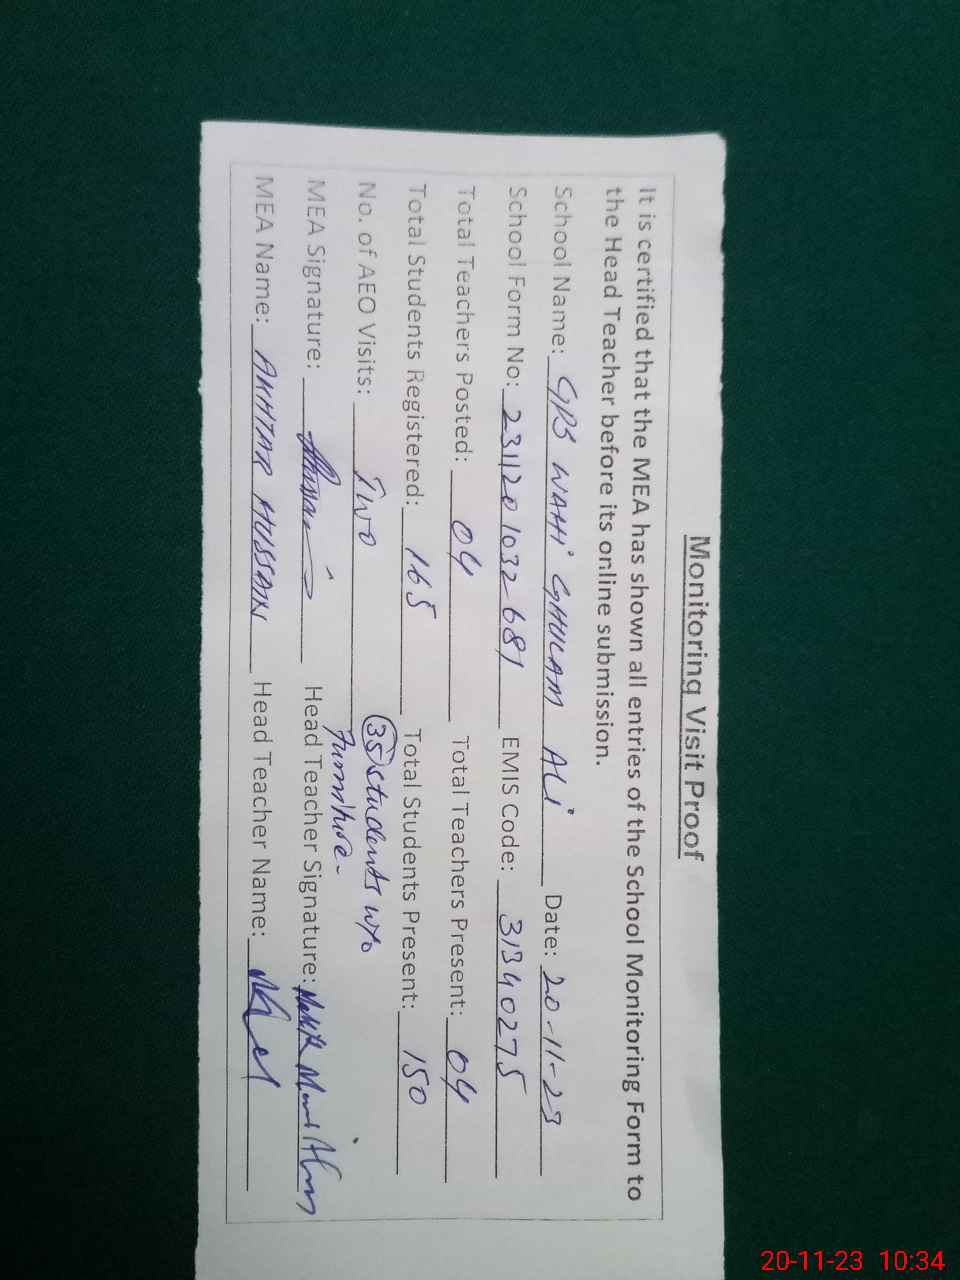 Monitoring Visit Proof
It is certified that the MEA has shown all entries of the School Monitoring Form to
the Head Teacher before its online submission.
School Name: GPS WAHI GHULAM ALI Date: 20-11-23
School Form No: 2311201032681 EMIS Code: 31340275
Total Teachers Posted: 04 Total Teachers Present: 04
Total Students Registered: 165 Total Students Present: 150
No. of AEO Visits: Two 35 students w/o
Furniture-
MEA Signature: Head Teacher Signature:
MEA Name: AKHTAR HUSSAIN Head Teacher Name:
20-11-23 10:34